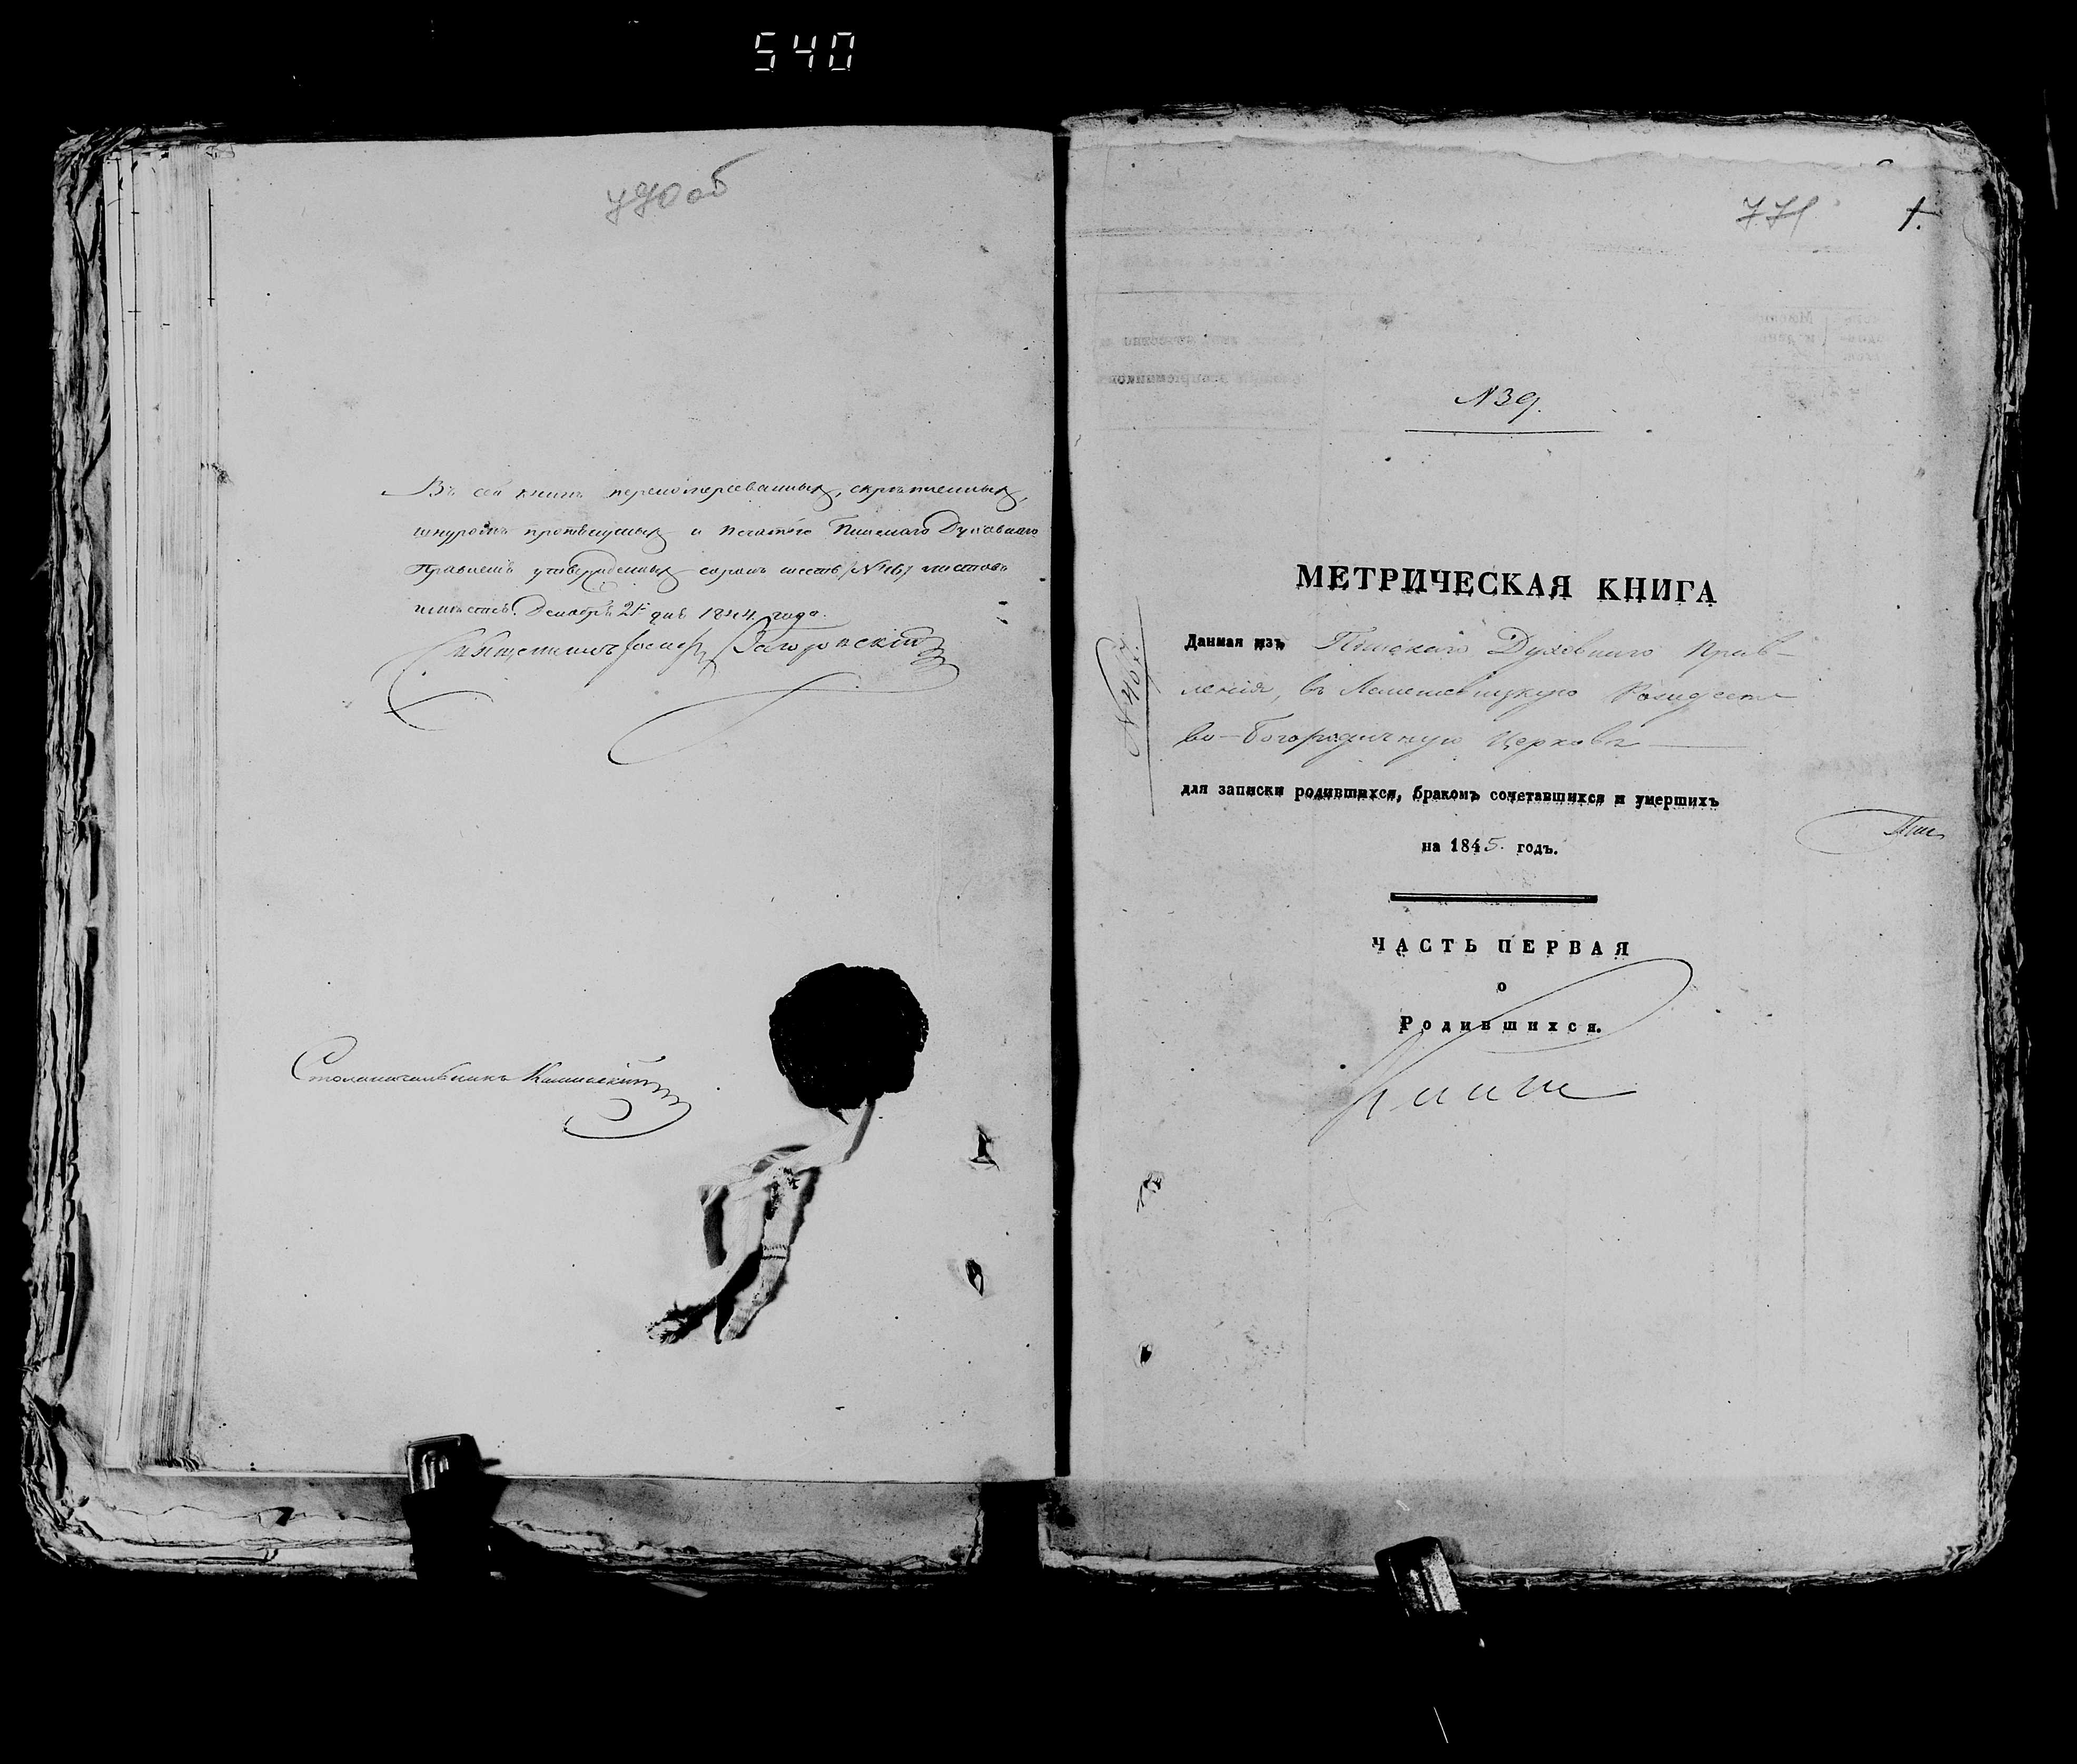 540
770 об
Въ сей книгѣ перенумерованныхъ, скрѣпленныхъ,
шнуромъ протянутыхъ и печатью Пинскаго Духовнаго
Правленія утвержденныхъ сорокъ шесть (№ 46) листовъ
имѣется. Декабря 21 дня 1844 года.
Загоровскій
Столоначальникъ Калинскій
771 1.
№ 39.
МЕТРИЧЕСКАЯ КНИГА
Данная изъ Пинскаго Духовнаго Прав-
ленія, въ Лемешевицкую Рождест-
во-Богородичную Церковь
для записки родившихся, бракомъ сочетавшихся и умершихъ
на 1845. годъ.
ЧАСТЬ ПЕРВАЯ
о
Родившихся.